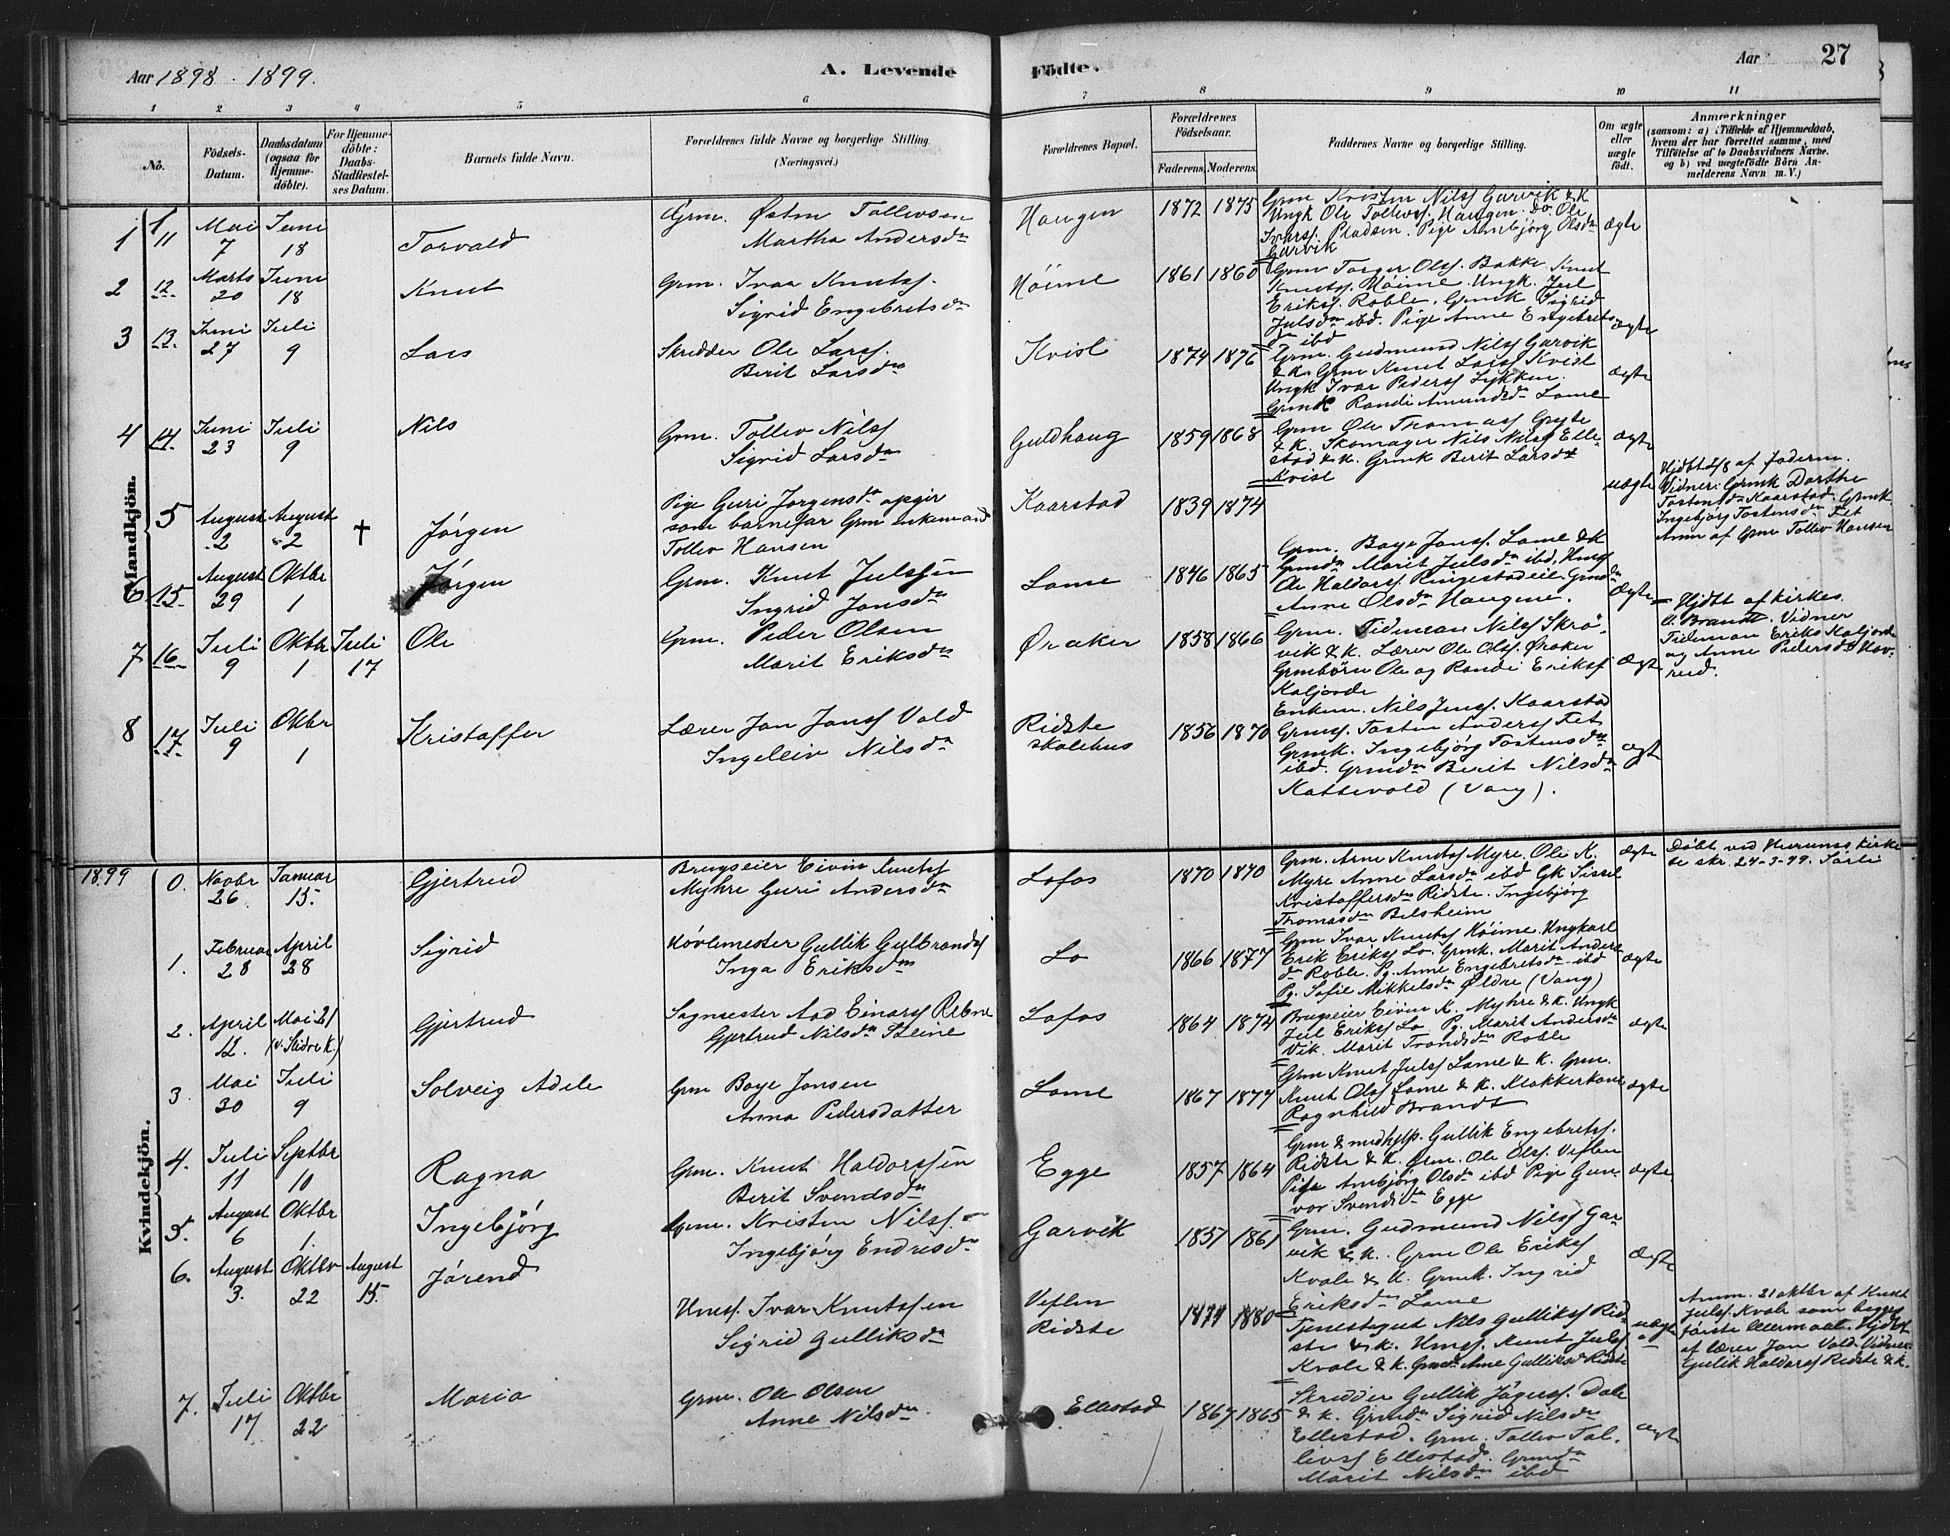 Aar 1898 - 1899.
A. Levende Födte.
Aar 27
1 2 3 4 5 6 7 8 9 10 11
No.
Födsels-Datum.
Daabsdatum (ogsaa for Hjemme-döbte).
For Hjemme-döbte: Daabs-Stadfæstel-ses Datum.
Barnets fulde Navn.
Forældrenes fulde Navne og borgerlige Stilling (Næringsvei.)
Forældrenes Bopæl.
Forældrenes Födselsaar.
Faderens. Moderens.
Faddernes Navne og borgerlige Stilling.
Om ægte eller uægte födt.
Anmærkninger
(saasom: a) i Tilfælde af Hjemmedaab, hvem der har forrettet samme, med Tilföielse af to Daabsvidners Navne. og b) ved uægtefödte Börn An-melderens Navn m. V.)
Mandkjön.
1 11 Mai 7 Juni 18 Torvald
Grm. Østen Tollevsen
Martha Andersdn
Haugen 1872 1875
Grm Kristen Nilss Garvik & K
Ungk Ole Tollevs. Haugen. Do Ole
Ivarss. Pladsen. Pige Ambjörg Olsdn
Garvik
ægte
2 12 Marts 20 Juni 18 Knut
Grm. Ivar Knutss.
Sigrid Engebretsdn
Höime 1861 1860
Grm Torger Olss. Bakke Knut
Knutss. Höime. Ungk. Jul
Erikss. Roble. Grmk Sigrid
Julsdn ibd. Pige Anne Engebrets
dn ibd
ægte
3 13 Juni 27 Juli 9 Lars
Skrædder Ole Larss.
Berit Larsdn
Kvisl 1874 1876
Grm. Gudmund Nilss Garvik
& K. Grm Knut Larss Kvisl
Ungk Ivar Pederss Lykken
Grmdn Randi Amundsdn Lome
ægte
4 14 Juni 23 Juli 9 Nils
Grm. Tollev Nilss
Sigrid Larsdn
Guldhaug 1859 1868
Grm Ole Thomass Gryte
& K. Skomager Nils Nilss Elle-
stad & K. Grmk Berit Larsdn
Kvisl
ægte
5 August 2 August 2 † Jörgen
Pige Guri Jorgensdn opgir
som barnefar Grm enkemand
Tollev Hansen
Kaarstad 1839 1874
uægte
Hjdbt 2/8 af Joderm.
Vidner: Grmk Dorthe
Tostensdn Kaarstad Grmk.
Ingebjörg Tostensdn Fet
Anm af Grm Tollev Hansen
6 15 August 29 Oktbr 1 Jörgen
Grm. Knut Julssen
Ingrid Jonsdn
Lome 1846 1865
Grm. Boye Jonss. Lome & K
Grmdn Marit Julsdn ibd. Hmss
Ole Haldorss Ringestadeie. Grmdn
Anne Olsdn Haugene.
ægte
7 16 Juli 9 Oktbr 1 Juli 17 Ole
Grm. Peder Olsen
Marit Eriksdn
Öraker 1858 1866
Grm. Tideman Nilss Skrö-
vik & K. Lærer Ole Olss. Öraker
Grmbörn Ole og Randi Erikss
Kaljorde
ægte
Hjdbt af kirkes.
O. Brandt. Vidner
Tideman Eriks Kaljorde
og Anne Pedersdn Hov-
rud.
8 17 Juli 9 Oktbr 1 Kristoffer
Lærer Jon Jonss Vold
Ingeleiv Nilsdn
Ridste skolehus 1856 1870
Enkem. Nils Jenss. Kaarstad
Grmss. Tosten Anderss Fet
Grmk. Ingebjörg Tostensdn
ibd. Grmdn Berit Nilsdn
Kattevold (Vang).
ægte
1899
Kvindekjön.
0. Novbr 26. Januar 15. Gjertrud
Brugseier Eivin Knutss
Myhre Guri Andersdn
Lofos 1870 1870
Grm. Arne Knutss Myre. Ole K.
Myre Anne Larsdn ibd Gk Sissel
Kristoffersdn Ridste. Ingebjörg
Thomasdn Belsheim
ægte
Döbt ved Hurums kirke
se skr. 24-3-99. Sörli
1. Februar 28 April 28 Sigrid
Hövlemester Gullik Gulbrandss
Inga Eriksdn
Lo 1866 1877
Grm Ivar Knutss Höime. Ungkarl
Erik Erikss Lo. Grmk. Marit Anders
dn Roble. Pg. Anne Engebretsdn ibd
Pg. Sofie Mikkelsdn Öldre (Vang)
ægte
2. April 12. Mai 21 (v. Slidre K) Gjertrud
Sagmester Aad Einarss Rebne
Gjertrud Nilsdn Steine
Lofos 1864 1874
Brugseier Eivin K. Myhre & K. Ungk
Jul Erikss Lo Pg. Marit Andersdn
Vik. Marit Trondsdn Roble
ægte
3. Mai 30 Juli 9 Solveig Adele
Grm Boye Jonsen
Anna Pedersdatter
Lome 1867 1877
Grm Knut Julss Lome & K. Grm.
Knut Olss Lome & K. Klokkerkone
Ragnhild Brandt
ægte
4. Juli 11 Septbr 10 Ragna
Grm. Knut Haldorssen
Berit Svendsdn
Egge 1857 1864
Grm & medhjlp. Gullik Engebretss.
Ridste & K. Grm. Ole Olss. Veflen
Pige Ambjörg Olsdn ibd Pige Gun-
vor Svendsdn Egge
ægte
5. August 6 Oktbr 1. Ingebjörg
Grm. Kristen Nilss.
Ingebjörg Endresdn
Garvik 1857 1861
Grm. Gudmund Nilss Gar-
vik & K. Grm Ole Erikss
Kvale & K. Grmk. Ingrid
Eriksdn Lome
ægte
6. August 3. Oktbr 22 August 15. Jörend
Hmss. Ivar Knutssen
Sigrid Gulliksdn
Veflen
Ridste 1877 1880
Tjenestegut Nils Gullikss Rid-
ste & K. Hmss. Knut Julss.
Kvale & K. Grmdn Arne Gulliksdn Ridste
uægte
Anm. 21 oktbr af Knut
Julss. Kvale som begges
förste Leiermaal. Hjdbt
af lærer Jon Vold. Vidner
Gulik Haldorss Ridste & K.
7. Juli 17 Oktbr 22 Maria
Grm. Ole Olsen
Anne Nilsdn.
Ellestad 1867 1865
Skrædder Gullik Jögerss. Dale
& K. Grmdn Sigrid Nilsdn
Ellestad. Grm. Tollev Tol-
livss Ellestad. Grmdn
Marit Nilsdn ibd
ægte